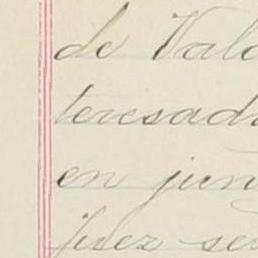 de Vald
teresad
en jun
Juez se